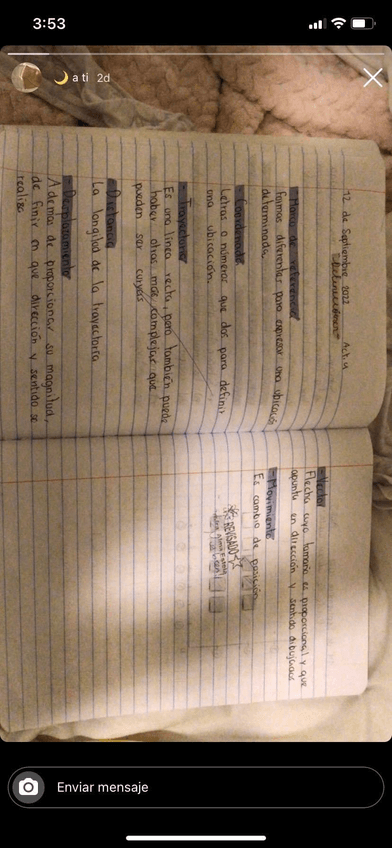 3:53
a ti 2d
12 de Septiembre 2022 Act. 4
- Marco de referencia
formas diferentes para expresar una ubicacion
determinada.
- Coordenada
Letras o números que dos para definir
una ubicación.
- Trayectoria
Es una linea recta, pero también puede
haber otras mas complejas que
pueden ser curvas
- Distancia
La longitud de la trayectoria
- Desplazamiento
Ademas de proporcionar su magnitud,
de finir en que dirección y sentido se
realiza
- Vector
Flecha cuyo tamaño es proporcional y que
apunta en dirección y sentido
- Movimiento
Es cambio de posición
REVISADO
Enviar mensaje